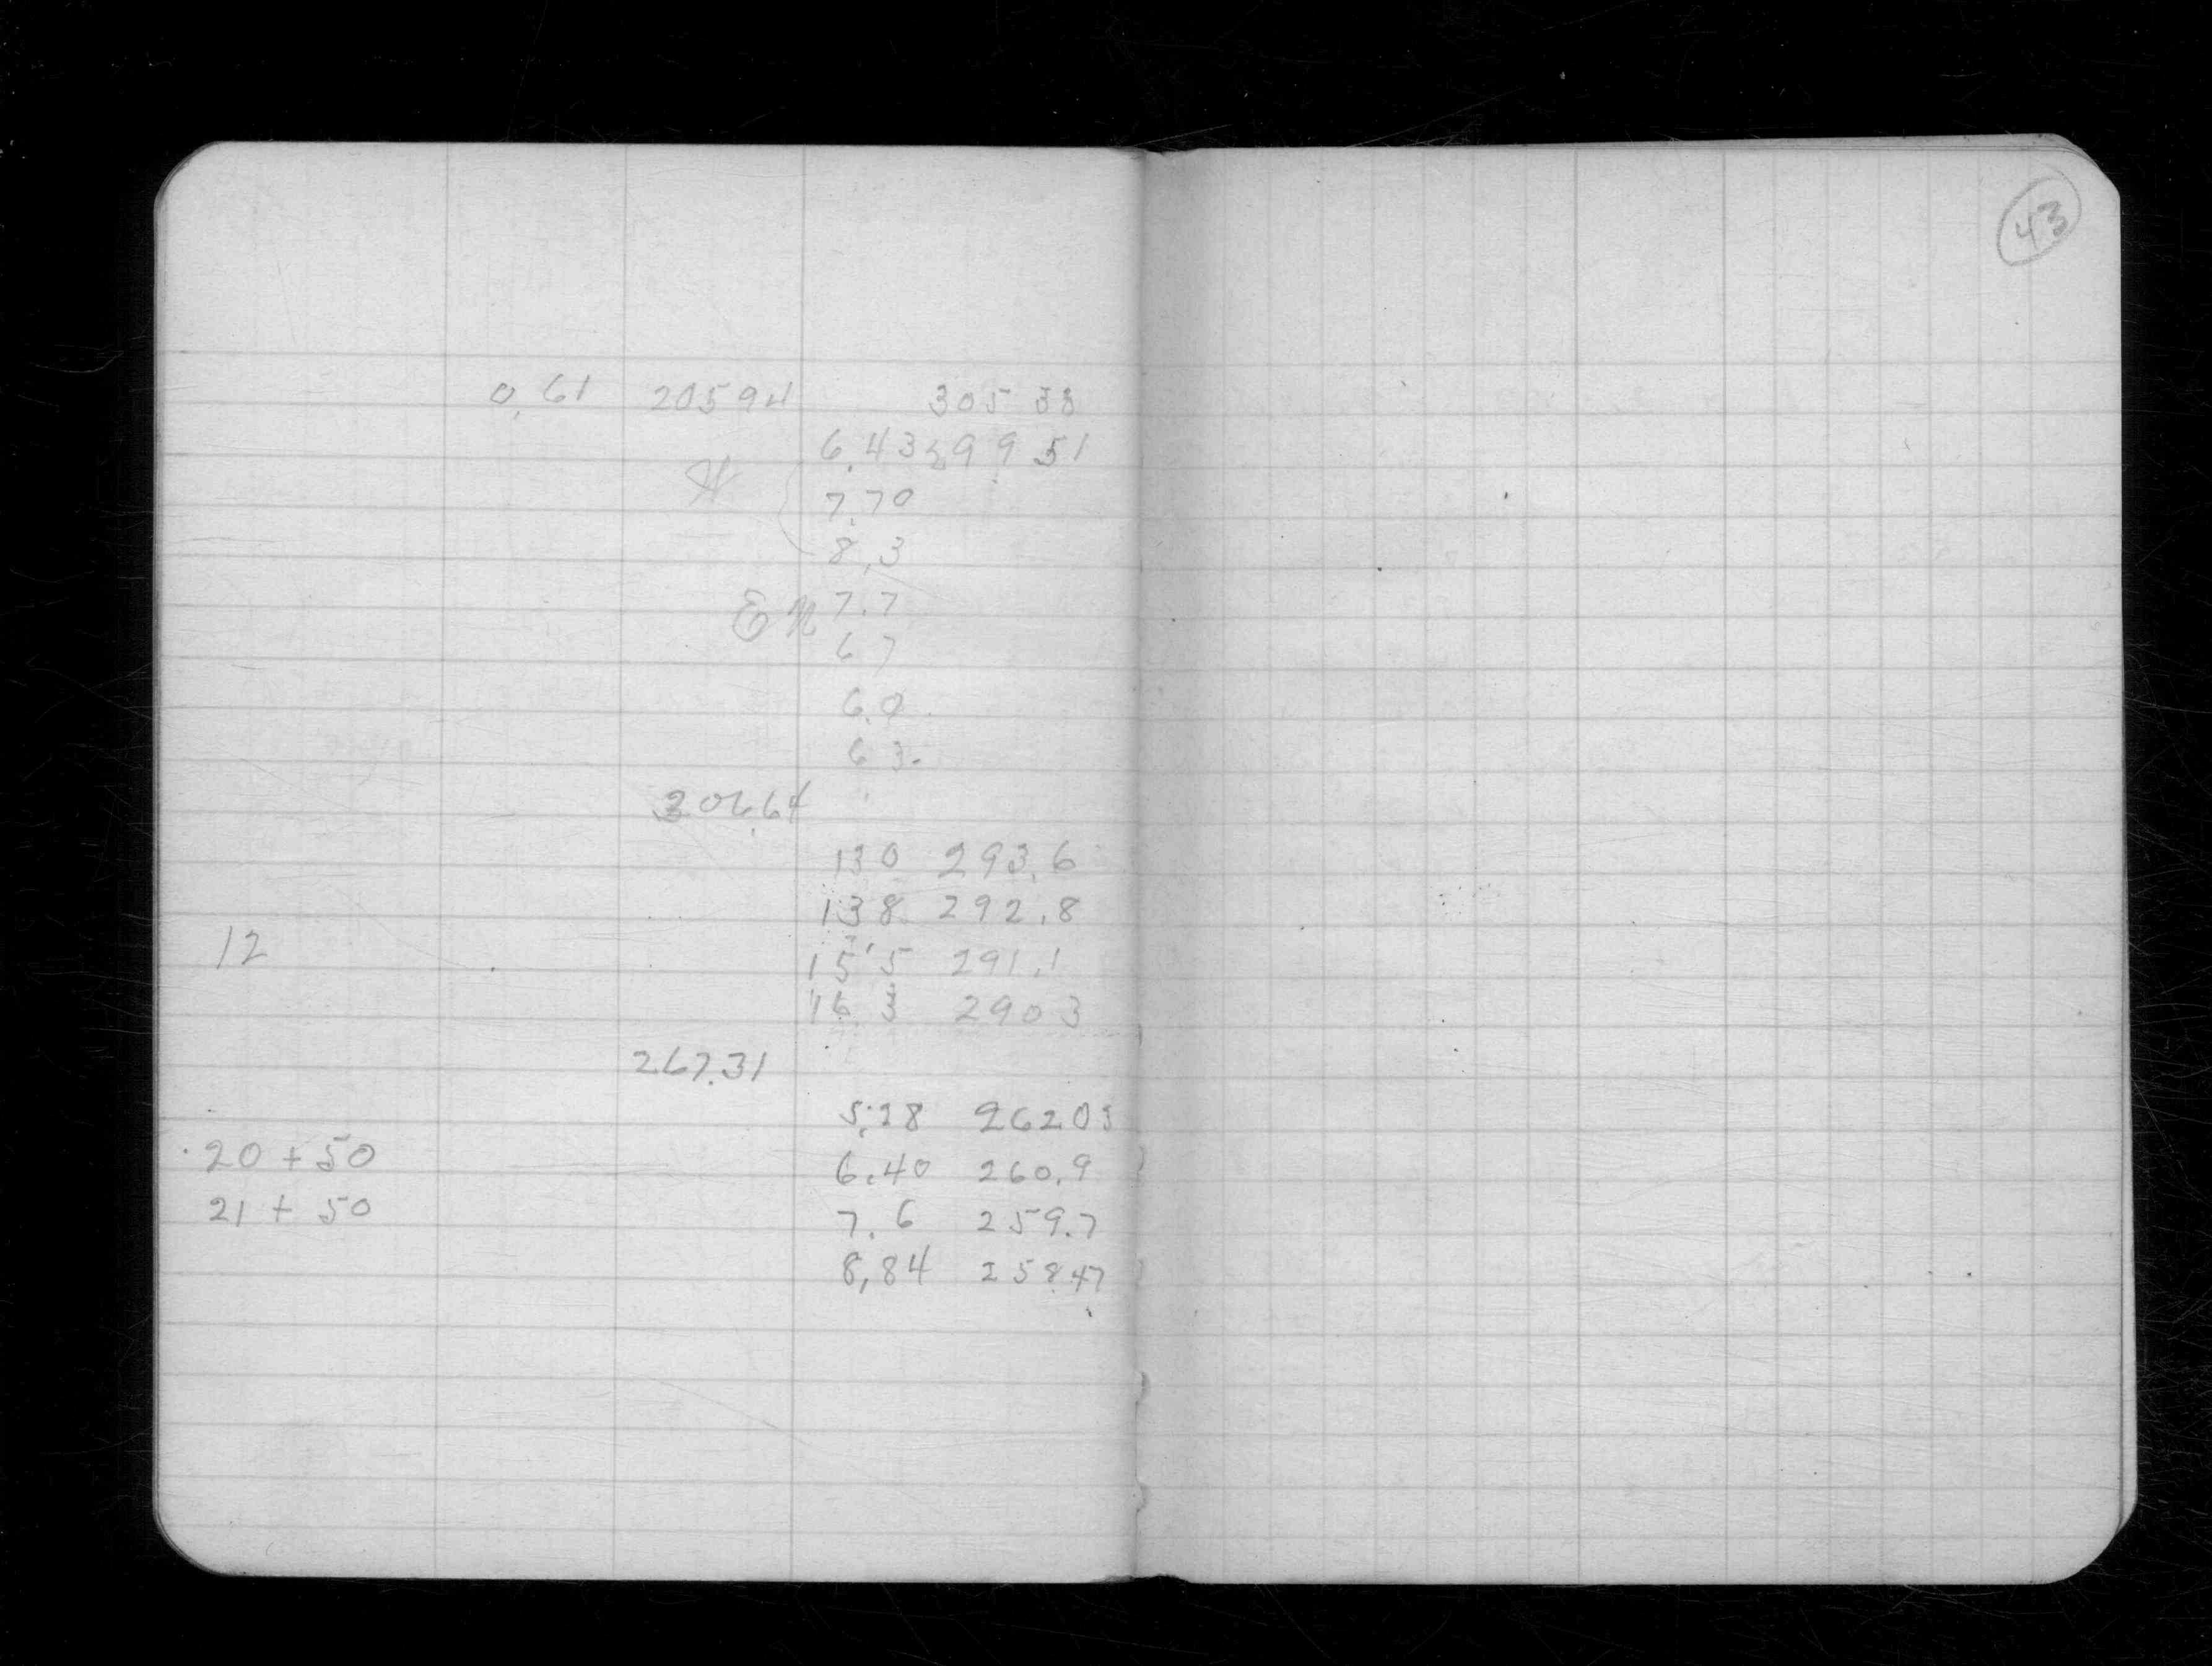 43
0,61 20594 305 33
6.43 299 51
H 7.70
8,3
E N 7.7
6 7
6.0
6 3.
306.64
130 293.6
138 292.8
12
15.5 291.1
16 3 290 3
267.31
5.28 262 03
20 + 50 6.40 260.9
21 + 50 7.6 259.7
8,84 258.47